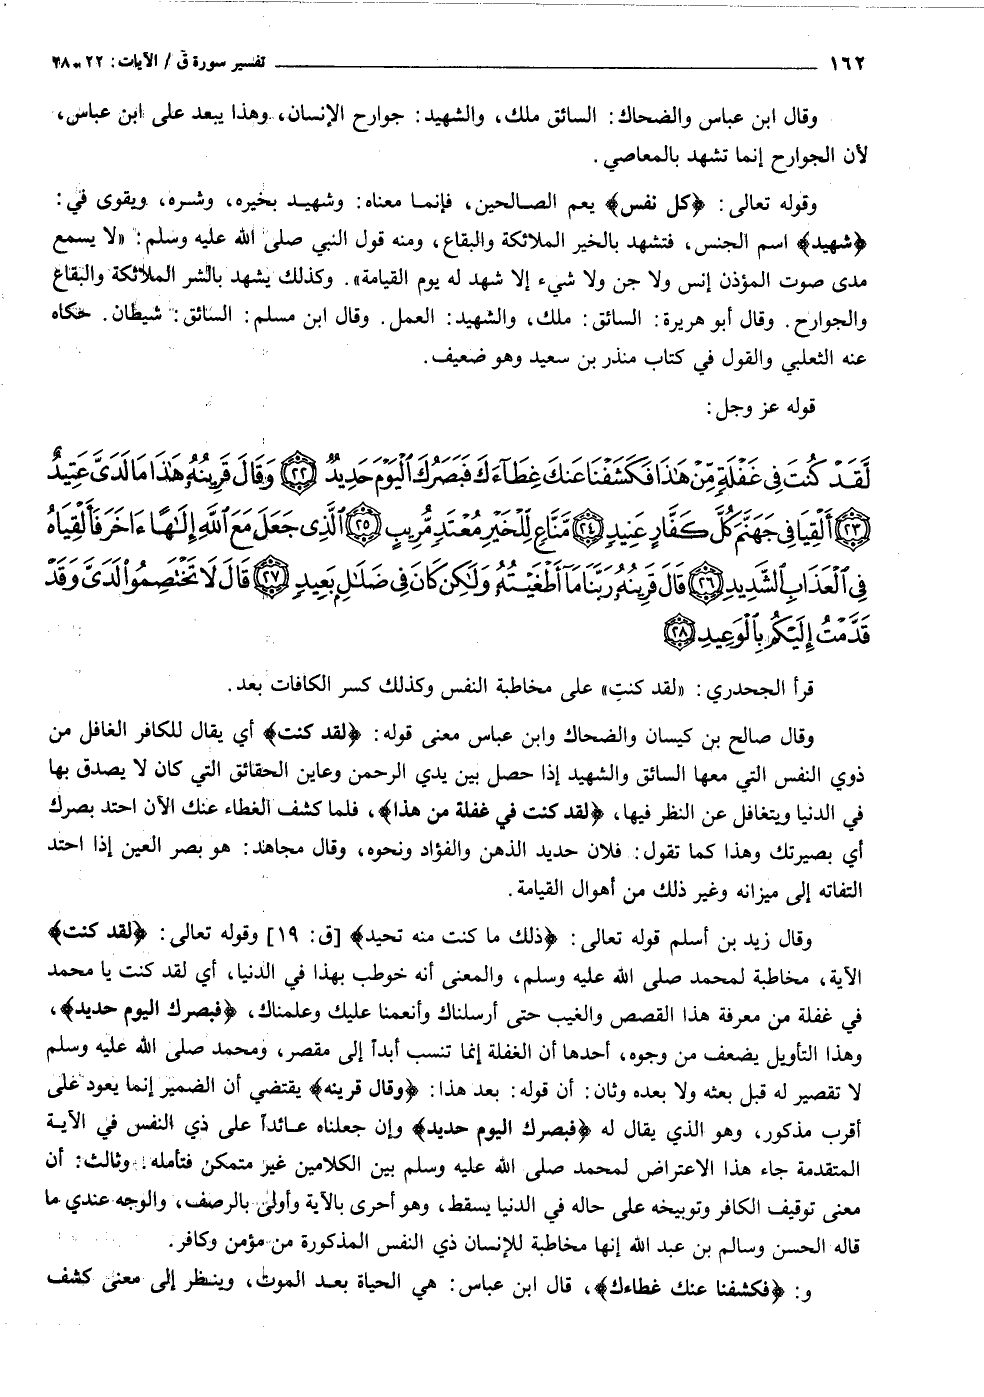 ١٦٢ ــــــــــــــــــــ تفسير سورة قَ / الآيات: ٢٢ ـ ٢٨
وقال ابن عباس والضحاك: السائق ملك، والشهيد: جوارح الإنسان، وهذا يبعد على ابن عباس،
لأن الجوارح إنما تشهد بالمعاصي.
وقوله تعالى: ﴿كل نفس﴾ يعم الصالحين، فإنما معناه: وشهيد بخيره، وشره، ويقوى في:
﴿شهيد﴾ اسم الجنس، فتشهد بالخير الملائكة والبقاع، ومنه قول النبي صلى الله عليه وسلم: «لا يسمع
مدى صوت المؤذن إنس ولا جن ولا شيء إلا شهد له يوم القيامة». وكذلك يشهد بالشر الملائكة والبقاع
والجوارح. وقال أبو هريرة: السائق: ملك، والشهيد: العمل. وقال ابن مسلم: السائق: شيطان. حكاه
عنه الثعلبي والقول في كتاب منذر بن سعيد وهو ضعيف.
قوله عز وجل:
لَّقَدْ كُنتَ فِي غَفْلَةٍ مِّنْ هَٰذَا فَكَشَفْنَا عَنكَ غِطَآءَكَ فَبَصَرُكَ ٱلْيَوْمَ حَدِيدٌ ﴿٢٢﴾ وَقَالَ قَرِينُهُۥ هَٰذَا مَا لَدَىَّ عَتِيدٌ
﴿٢٣﴾ أَلْقِيَا فِي جَهَنَّمَ كُلَّ كَفَّارٍ عَنِيدٍ ﴿٢٤﴾ مَّنَّاعٍ لِّلْخَيْرِ مُعْتَدٍ مُّرِيبٍ ﴿٢٥﴾ ٱلَّذِي جَعَلَ مَعَ ٱللَّهِ إِلَٰهًا ءَاخَرَ فَأَلْقِيَاهُ
فِي ٱلْعَذَابِ ٱلشَّدِيدِ ﴿٢٦﴾ قَالَ قَرِينُهُۥ رَبَّنَا مَآ أَطْغَيْتُهُۥ وَلَٰكِن كَانَ فِي ضَلَٰلٍۭ بَعِيدٍ ﴿٢٧﴾ قَالَ لَا تَخْتَصِمُوا۟ لَدَىَّ وَقَدْ
قَدَّمْتُ إِلَيْكُم بِٱلْوَعِيدِ ﴿٢٨﴾
قرأ الجحدري: «لقد كنتِ» على مخاطبة النفس وكذلك كسر الكافات بعد.
وقال صالح بن كيسان والضحاك وابن عباس معنى قوله: ﴿لقد كنت﴾ أي يقال للكافر الغافل من
ذوي النفس التي معها السائق والشهيد إذا حصل بين يدي الرحمن وعاين الحقائق التي كان لا يصدق بها
في الدنيا ويتغافل عن النظر فيها، ﴿لقد كنت في غفلة من هذا﴾، فلما كشف الغطاء عنك الآن احتد بصرك
أي بصيرتك وهذا كما تقول: فلان حديد الذهن والفؤاد ونحوه، وقال مجاهد: هو بصر العين إذا احتد
التفاته إلى ميزانه وغير ذلك من أهوال القيامة.
وقال زيد بن أسلم قوله تعالى: ﴿ذلك ما كنت منه تحيد﴾ [ق: ١٩] وقوله تعالى: ﴿لقد كنت﴾
الآية، مخاطبة لمحمد صلى الله عليه وسلم، والمعنى أنه خوطب بهذا في الدنيا، أي لقد كنت يا محمد
في غفلة من معرفة هذا القصص والغيب حتى أرسلناك وأنعمنا عليك وعلمناك، ﴿فبصرك اليوم حديد﴾،
وهذا التأويل يضعف من وجوه، أحدها أن الغفلة إنما تنسب أبداً إلى مقصر، ومحمد صلى الله عليه وسلم
لا تقصير له قبل بعثه ولا بعده وثان: أن قوله: بعد هذا: ﴿وقال قرينه﴾ يقتضي أن الضمير إنما يعود على
أقرب مذكور، وهو الذي يقال له ﴿فبصرك اليوم حديد﴾ وإن جعلناه عائداً على ذي النفس في الآية
المتقدمة جاء هذا الاعتراض لمحمد صلى الله عليه وسلم بين الكلامين غير متمكن فتأمله. وثالث: أن
معنى توقيف الكافر وتوبيخه على حاله في الدنيا يسقط، وهو أحرى بالآية وأولى بالرصف، والوجه عندي ما
قاله الحسن وسالم بن عبد الله إنها مخاطبة للإنسان ذي النفس المذكورة من مؤمن وكافر.
و: ﴿فكشفنا عنك غطاءك﴾، قال ابن عباس: هي الحياة بعد الموت، وينظر إلى معنى كشف